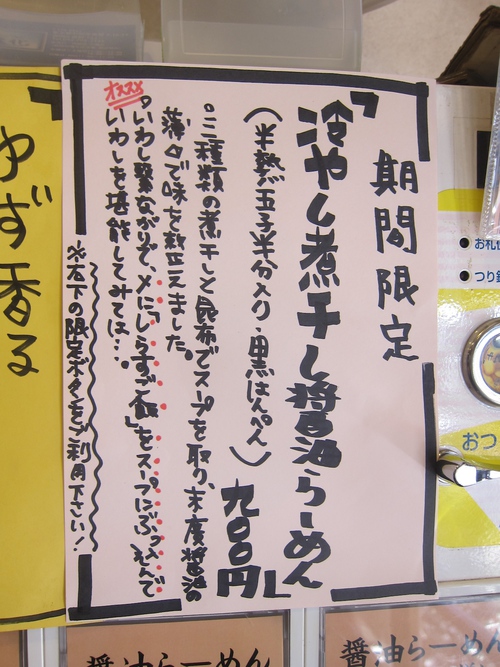 期間限定
「冷やし煮干し醤油らーめん」
(半熟玉子半分入り・黒はんぺん)
九〇〇円
。二種類の煮干しと昆布でスープを取り、末廣醤油の
薄口で味を整えました。
オススメ
。いわし繋ながりで、〆に「しらすご飯」をスープにぶっこんで
いわしを堪能してみては…。
※左下の限定ボタンをご利用下さい!
ゆず香る
お札
つり銭
おつ
醤油らーめん
醤油らーめん